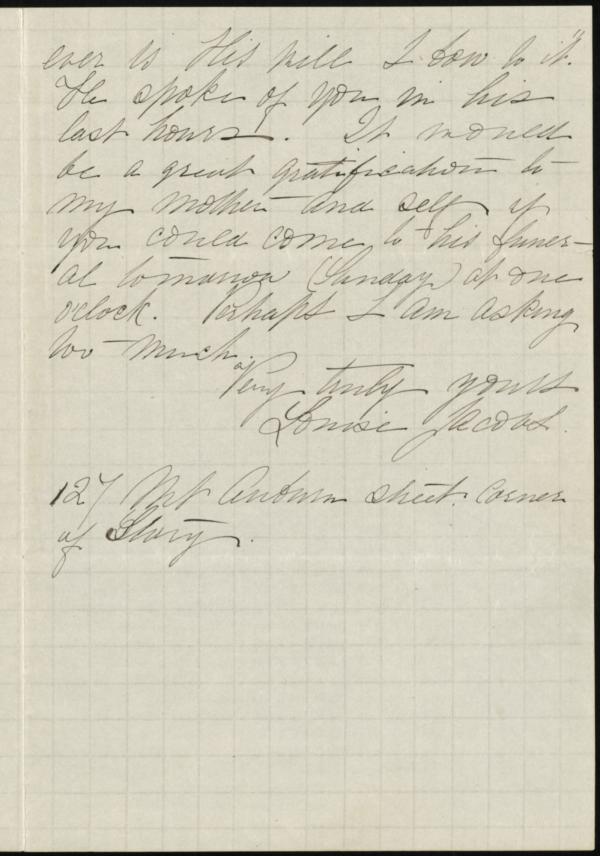 ever is His will I bow to it."
He spoke of you in his
last hours. It would
be a great gratification to
my mother and self if
you could come to his funer-
al tomorrow (Sunday) at one
o'clock. Perhaps I am asking
too much.
Very truly yours
Louisa Jacobs.
127 Mt Auburn street. corner
of Story.